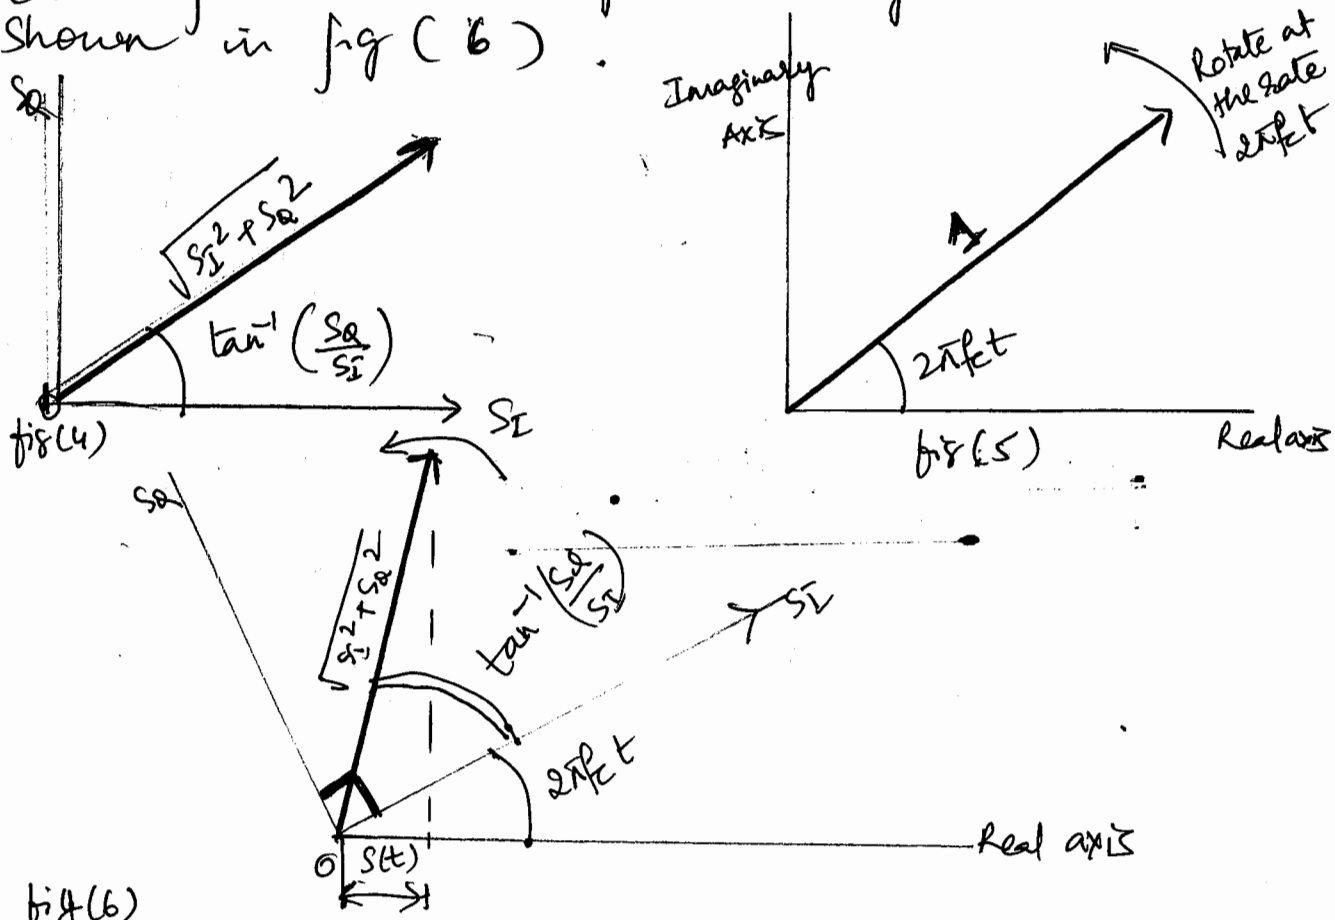 Shown in fig ( 6 ) .
SQ
√SI² + SQ²
tan⁻¹ (SQ/SI)
SI
fig(4)
Imaginary
Axis
Rotate at
the rate
2πfct
A
2πfct
Real axis
fig(5)
SQ
√SI² + SQ²
tan⁻¹ (SQ/SI)
SI
2πfc t
Real axis
0
S(t)
fig(6)